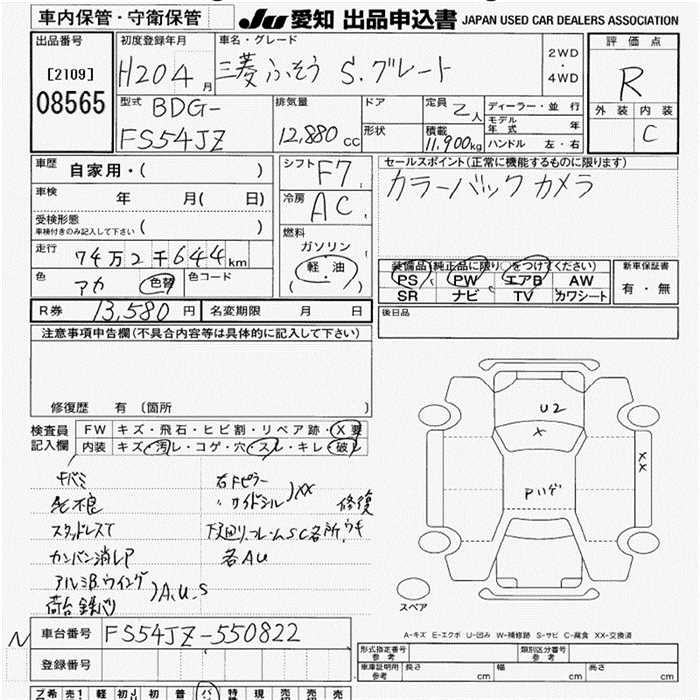 車内保管・守衛保管
JU 愛知 出品申込書 JAPAN USED CAR DEALERS ASSOCIATION
出品番号
[2109]
08565
初度登録年月
H20 4 月
車名・グレード
三菱ふそう S.グレート
2WD
・
4WD
評価点
R
外装 内装
C
型式 BDG-
FS54JZ
排気量
12,880 cc
ドア
形状
定員 2 人
積載
11,900 kg
ディーラー・並行
モデル年式 年
ハンドル 左・右
車歴 自家用・( )
車検 年 月( 日)
受検形態
車検付きのみ記入して下さい ( )
走行 74万2千644km
色 アカ 色替 色コード
シフト F7
冷房 AC
燃料
ガソリン
軽・油
セールスポイント(正常に機能するものに限ります)
カラーバックカメラ
装備品(純正品に限り○をつけてください)
PS PW エアB AW
SR ナビ TV カワシート
新車保証書
有・無
R券 13,580 円 名変期限 月 日
後日品
注意事項申告欄(不具合内容等は具体的に記入して下さい)
修復歴 有 〔箇所 〕
検査員
記入欄
FW キズ・飛石・ヒビ割・リペア跡・X要
内装 キズ・汚レ・コゲ・穴・スレ・キレ・破レ
キバミ
スタッドレスT
カンバン消しア
アルミB.ウイング
荷台鉄バリ
)A,U,S
右Fピラー
〃サイドシル
)XX 修復
下廻り.フレームSC各所ウキ
各AU
U2
X
Pハゲ
XX
スペア
A-キズ E-エクボ U-凹み W-補修跡 S-サビ C-腐食 XX-交換済
N
車台番号 FS54JZ-550822
登録番号
形式指定番号
参考
類別区分番号
参考
車庫証明用
参考
長さ cm 幅 cm 高さ cm